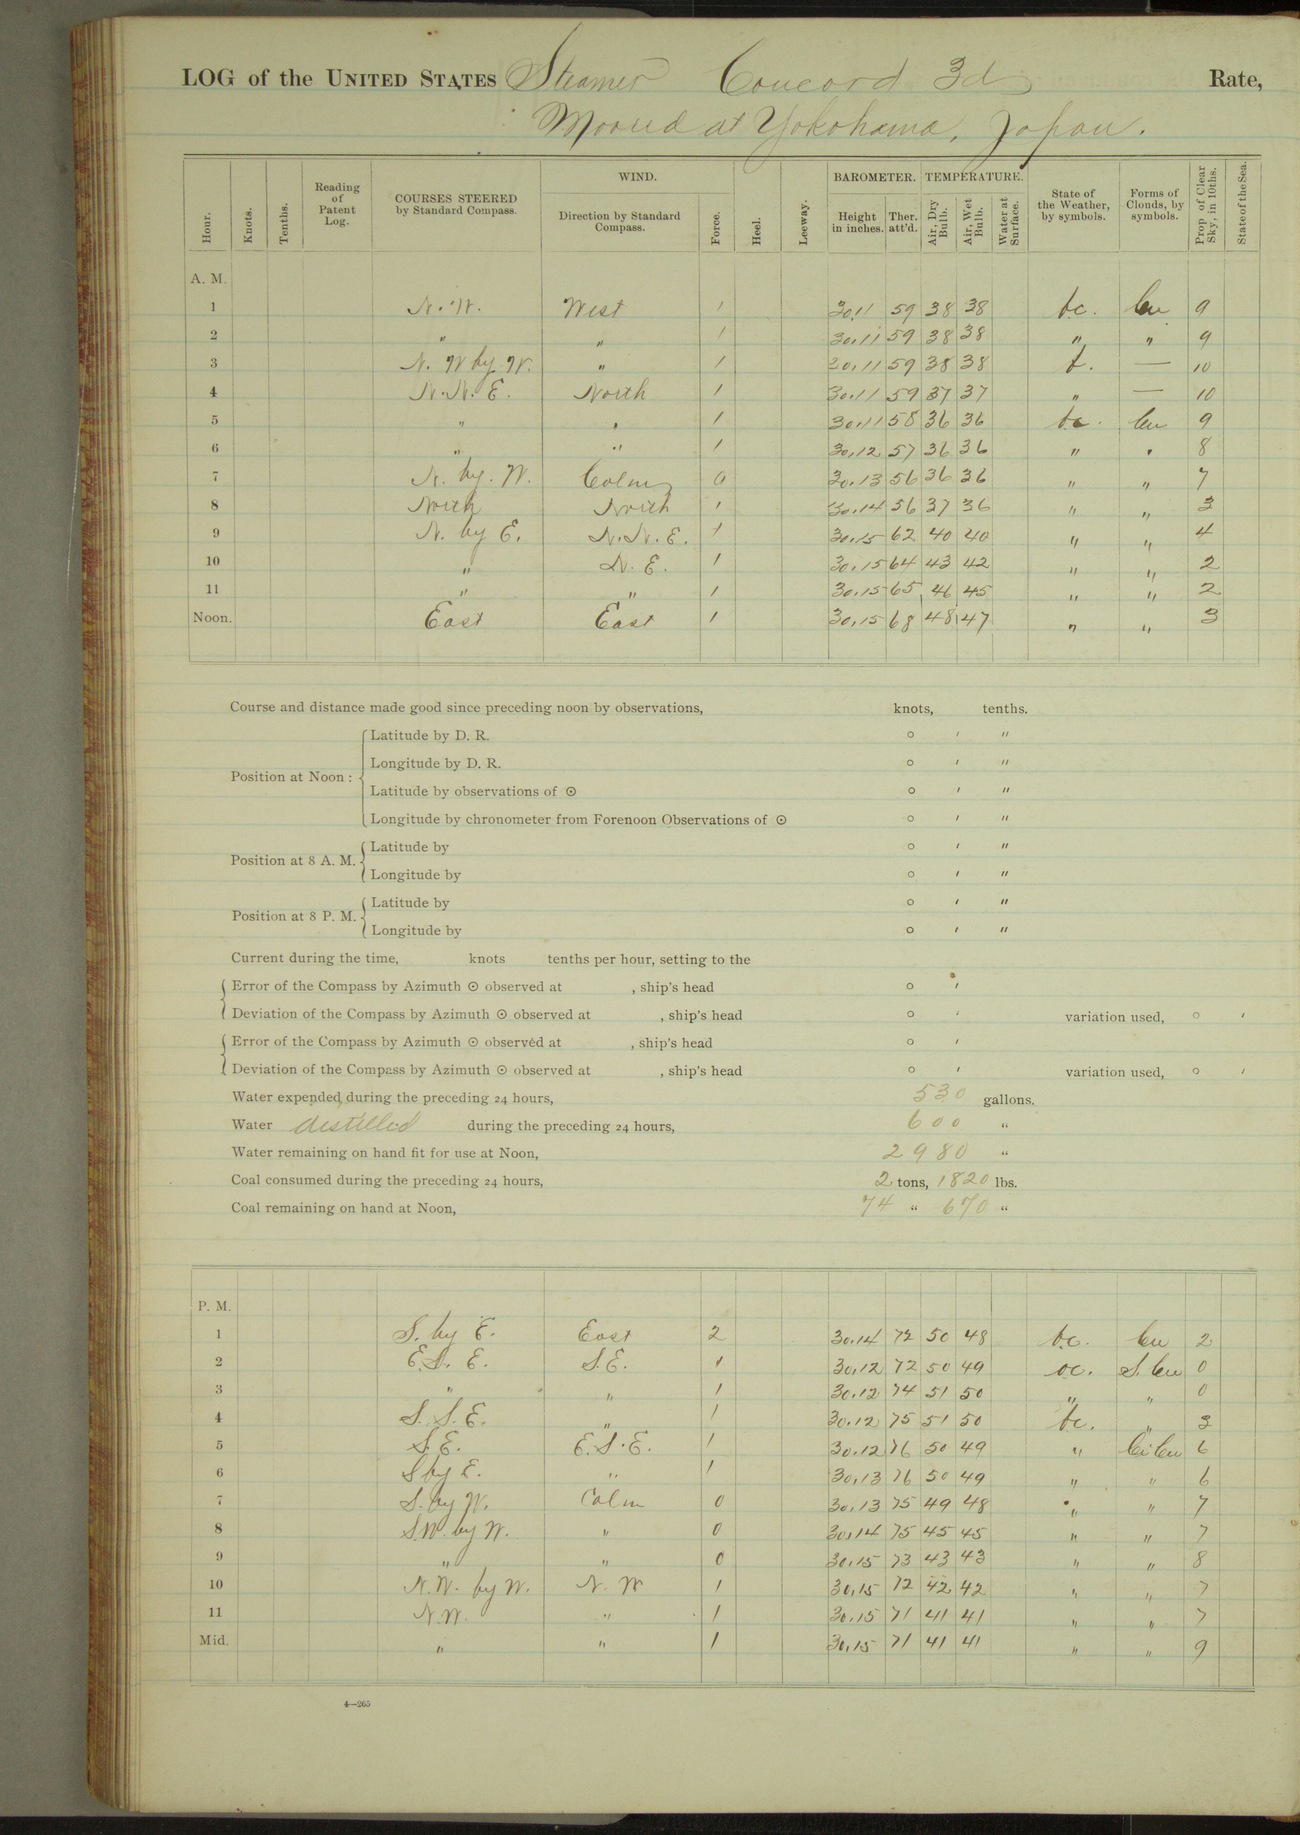 LOG of the UNITED STATES Steamer Concord 3d Rate,
Moored at Yokohama, Japan.
Hour. Knots. Tenths. Reading of Patent Log. COURSES STEERED by Standard Compass. WIND. Direction by Standard Compass. Force. Heel. Leeway. BAROMETER. Height in inches. Ther. att'd. TEMPERATURE. Air, Dry Bulb. Air, Wet Bulb. Water at Surface. State of the Weather, by symbols. Forms of Clouds, by symbols. Prop. of Clear Sky, in 10ths. State of the Sea.
A. M.
1 N.W. West 1 30.11 59 38 38 b.c. Cu 9
2 " " 1 30.11 59 38 38 " " 9
3 N. W by W. " 1 30.11 59 38 38 b. — 10
4 N.N.E. North 1 30.11 59 37 37 " — 10
5 " " 1 30.11 58 36 36 b.c. Cu 9
6 " " 1 30.12 57 36 36 " " 8
7 N. by. W. Calm 0 30.13 56 36 36 " " 7
8 North North 1 30.14 56 37 36 " " 3
9 N. by E. N.N.E. 1 30.15 62 40 40 " " 4
10 " N.E. 1 30.15 64 43 42 " " 2
11 " " 1 30.15 65 46 45 " " 2
Noon. East East 1 30.15 68 48 47 " " 3
Course and distance made good since preceding noon by observations, knots, tenths.
Position at Noon: Latitude by D. R. ° ′ ″
Longitude by D. R. ° ′ ″
Latitude by observations of ☉ ° ′ ″
Longitude by chronometer from Forenoon Observations of ☉ ° ′ ″
Position at 8 A. M. Latitude by ° ′ ″
Longitude by ° ′ ″
Position at 8 P. M. Latitude by ° ′ ″
Longitude by ° ′ ″
Current during the time, knots tenths per hour, setting to the
Error of the Compass by Azimuth ☉ observed at , ship's head ° ′
Deviation of the Compass by Azimuth ☉ observed at , ship's head ° ′ variation used, ° ′
Error of the Compass by Azimuth ☉ observed at , ship's head ° ′
Deviation of the Compass by Azimuth ☉ observed at , ship's head ° ′ variation used, ° ′
Water expended during the preceding 24 hours, 530 gallons.
Water distilled during the preceding 24 hours, 600 "
Water remaining on hand fit for use at Noon, 2980 "
Coal consumed during the preceding 24 hours, 2 tons, 1820 lbs.
Coal remaining on hand at Noon, 74 " 670 "
P. M.
1 S. by E. East 2 30.14 72 50 48 b.c. Cu 2
2 E.S.E. S.E. 1 30.12 72 50 49 o.c. S. Cu 0
3 " " 1 30.12 74 51 50 " " 0
4 S.S.E. " 1 30.12 75 51 50 b.c. " 3
5 S.E. E.S.E. 1 30.12 76 50 49 " Ci Cu 6
6 S by E. " 1 30.13 76 50 49 " " 6
7 S. by W. Calm 0 30.13 75 49 48 " " 7
8 S.W. by W. " 0 30.14 75 45 45 " " 7
9 " " 0 30.15 73 43 43 " " 8
10 N.W. by W. N.W 1 30.15 72 42 42 " " 7
11 N.W. " 1 30.15 71 41 41 " " 7
Mid. " " 1 30.15 71 41 41 " " 9
4—265